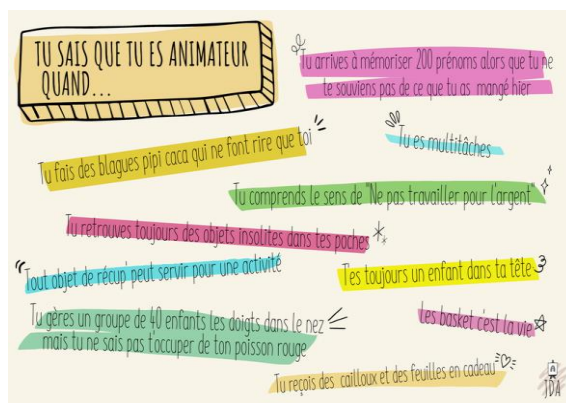 TU SAIS QUE TU ES ANIMATEUR
QUAND...
Tu arrives à mémoriser 200 prénoms alors que tu ne
te souviens pas de ce que tu as mangé hier
Tu fais des blagues pipi caca qui ne font rire que toi
Tu es multitâches
Tu comprends le sens de "Ne pas travailler pour l'argent"
Tu retrouves toujours des objets insolites dans tes poches
Tout objet de récup' peut servir pour une activité
T'es toujours un enfant dans ta tête
Tu gères un groupe de 40 enfants les doigts dans le nez
mais tu ne sais pas t'occuper de ton poisson rouge
Les basket c'est la vie
Tu reçois des cailloux et des feuilles en cadeau
JDA